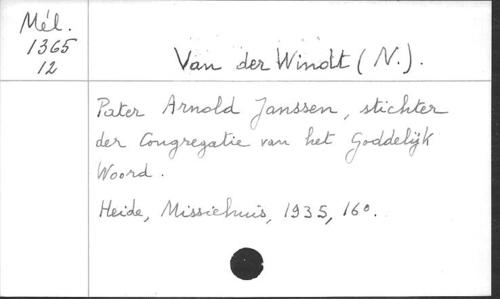 Mél.
1365
12
Van der Windt (N.).
Pater Arnold Janssen, stichter
der Congregatie van het Goddelijk
Woord.
Heide, Missiehuis, 1935, 16°.